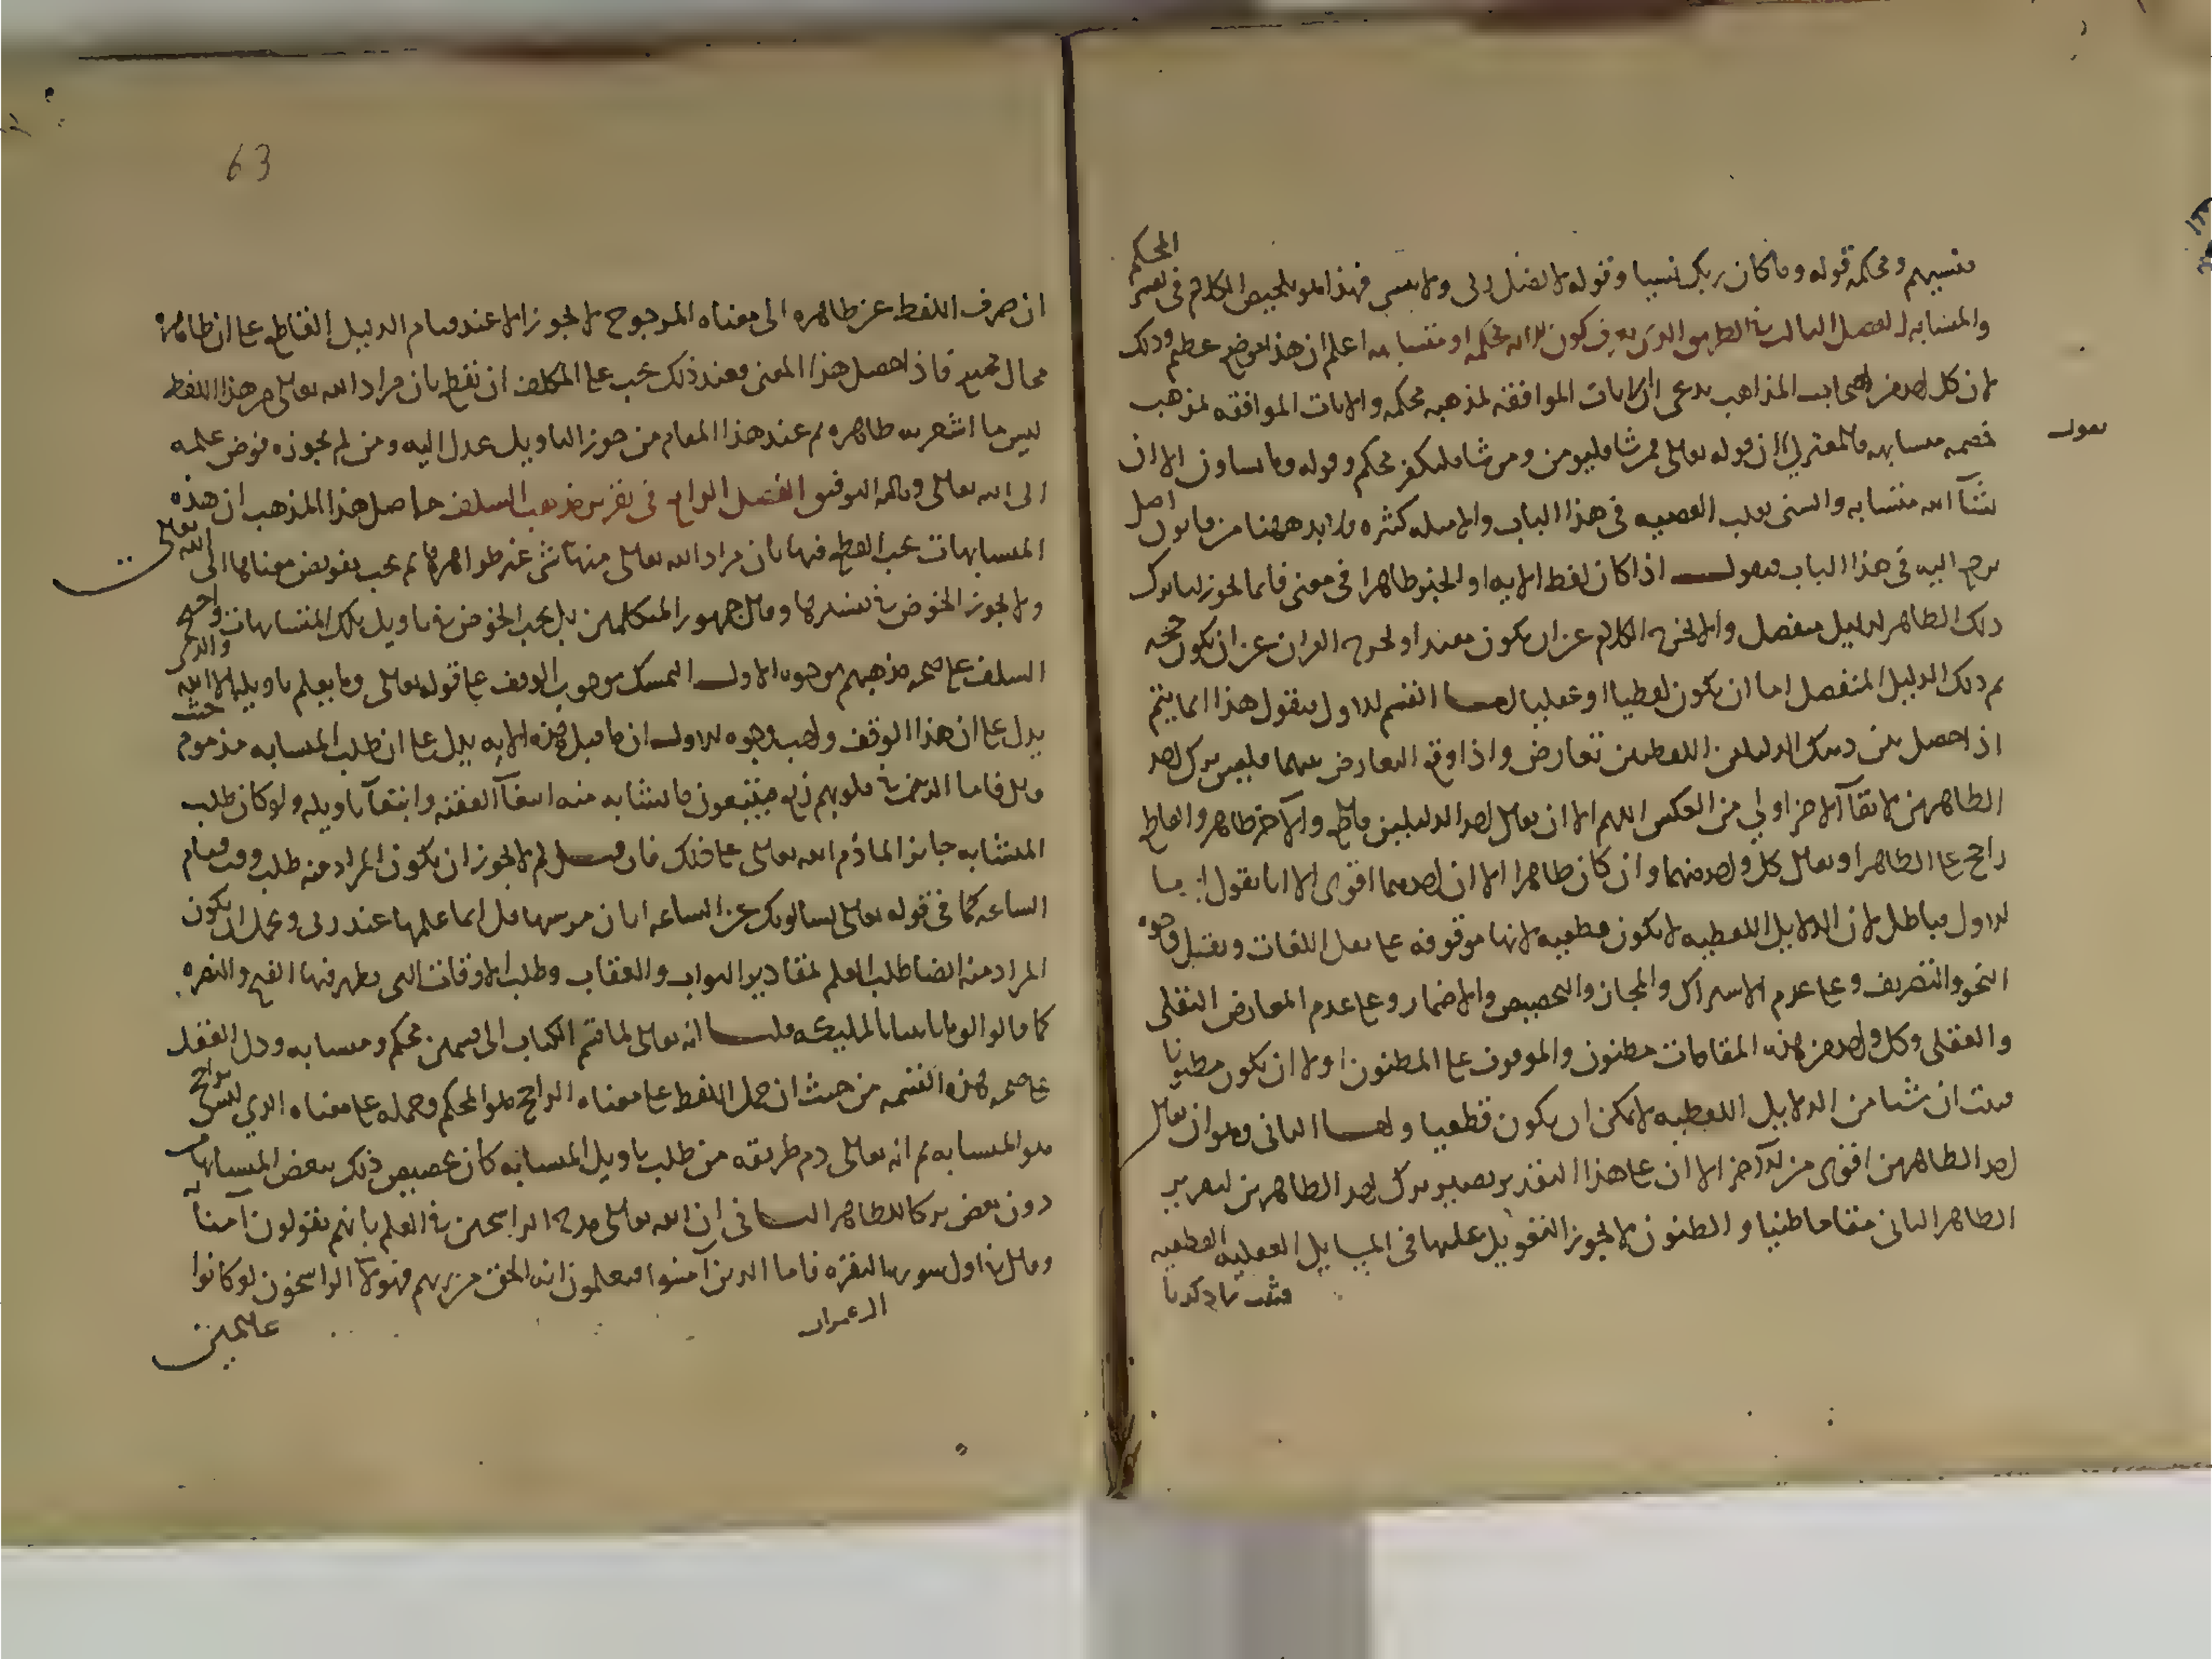 المحكم
فنسيهم ومحكمه قوله وما كان ربك نسيا وقوله لا يضل ربى ولا ينسى فهذا هو تلخيص الكلام فى تفسير
والمتشابه الفصل الثالث فى الطريق الذى يعرف كون الايه محكمه او متشابهه اعلم ان هذا موضع عظيم وذلك
لان كل احد من اصحاب المذاهب يدعى ان الايات الموافقه لمذهبه محكمه والايات الموافقه لمذهب
يقول
خصمه متشابهه فالمعتزلى ان قوله تعالى فمن شا فليومن ومن شا فليكفر محكم وقوله وما تشاون الا ان
يشآ الله متشابه والسنى يقلب القضيه فى هذا الباب والامثله كثيره فلا بد ههنا من قانون اصل
يرجع اليه فى هذا الباب فنقول اذا كان لفظ الايه او الخبر ظاهرا فى معنى فانما يجوز لنا ترك
ذلك الظاهر بدليل منفصل والا لخرج الكلام عن ان يكون مفيدا ولخرج القران عن ان يكون حجه
ثم ذلك الدليل المنفصل اما ان يكون لفظيا او عقليا اما القسم الاول فنقول هذا انما يتم
اذا حصل بين ذينك الدليلين اللفظيين تعارض واذا وقع التعارض بينهما فليس ترك احد
الظاهرين لابقآ الاخر اولى من العكس اللهم الا ان يقال احد الدليلين قاطع والآخر ظاهر والقاطع
راجح على الظاهر او يقال كل واحد منهما وان كان ظاهرا الا ان احدهما اقوى الا انا نقول اما
الاول فباطل لان الدلايل اللفظيه لا تكون قطعيه لانها موقوفه على نقل اللغات ونقل وجوه
النحو والتصريف وعلى عدم الاشتراك والمجاز والتخصيص والاضمار وعلى عدم المعارض النقلى
والعقلى وكل واحد من هذه المقامات مظنون والموقوف على المظنون اولى ان يكون مظنونا
فثبت ان شيا من الدلايل اللفظيه لا يمكن ان يكون قطعيا واما الثانى وهو ان يقال
احد الظاهرين اقوى من الآخر الا ان على هذا التقدير يصير ترك احد الظاهرين لتقرير
الظاهر الثانى مقاما ظنيا والظنون لا يجوز التعويل عليها فى المسايل العقليه القطعيه
فثبت بما ذكرنا
63
ان صرف اللفظ عن ظاهره الى معناه المرجوح لا يجوز الا عند قيام الدليل القاطع على ان ظاهره
محال ممتنع فاذا حصل هذا المعنى فعند ذلك يجب على المكلف ان يقطع بان مراد الله تعالى من هذا اللفظ
ليس ما اشعر به ظاهره ثم عند هذا المقام من جوز التاويل عدل اليه ومن لم يجوزه فوض علمه
الى الله تعالى وبالله التوفيق الفصل الرابع فى تقرير مذهب السلف حاصل هذا المذهب ان هذه
المتشابهات يجب القطع فيها بان مراد الله تعالى منها شى غير ظواهرها ثم يجب تفويض معناها الى الله تعالى
ولا يجوز الخوض فى تفسيرها وقال جمهور المتكلمين بل يجب الخوض فى تاويل تلك المتشابهات واحتج
السلف على صحه مذهبهم بوجوه الاول التمسك بوجوب الوقف على قوله تعالى وما يعلم تاويله الا الله والذى
يدل على ان هذا الوقف واجب وجوه الاول ان ما قبل هذه الايه يدل على ان طلب المتشابه مذموم حيث
قال فاما الذين فى قلوبهم زيغ فيتبعون ما تشابه منه ابتغآ الفتنه وابتغآ تاويله ولو كان طلب
المتشابه جايزا لما ذم الله تعالى على ذلك فان قيل لم لا يجوز ان يكون المراد منه طلب وقت قيام
الساعه كما فى قوله تعالى يسالونك عن الساعه ايان مرسيها قل انما علمها عند ربى ويحتمل ان يكون
المراد منه ايضا طلب العلم بمقادير الثواب والعقاب وطلب الاوقات التى يظهر فيها الفتح والنصره
كما قالوا لو ما تاتينا بالمليكه قلنا انه تعالى لما قسم الكتاب الى قسمين محكم ومتشابه ودل العقل
على صحه هذه القسمه من حيث ان حمل اللفظ على معناه الراجح هو المحكم وحمله على معناه الذى ليس براجح
هو المتشابه ثم انه تعالى ذم طريقه من طلب تاويل المتشابه كان تخصيص ذلك ببعض المتشابهات
دون بعض تركا للظاهر الثانى ان الله تعالى مدح الراسخين فى العلم بانهم يقولون آمنا به
وقال فى اول سوره البقره فاما الذين آمنوا فيعلمون انه الحق من ربهم فهولآ الراسخون لو كانوا
ال عمران
عالمين